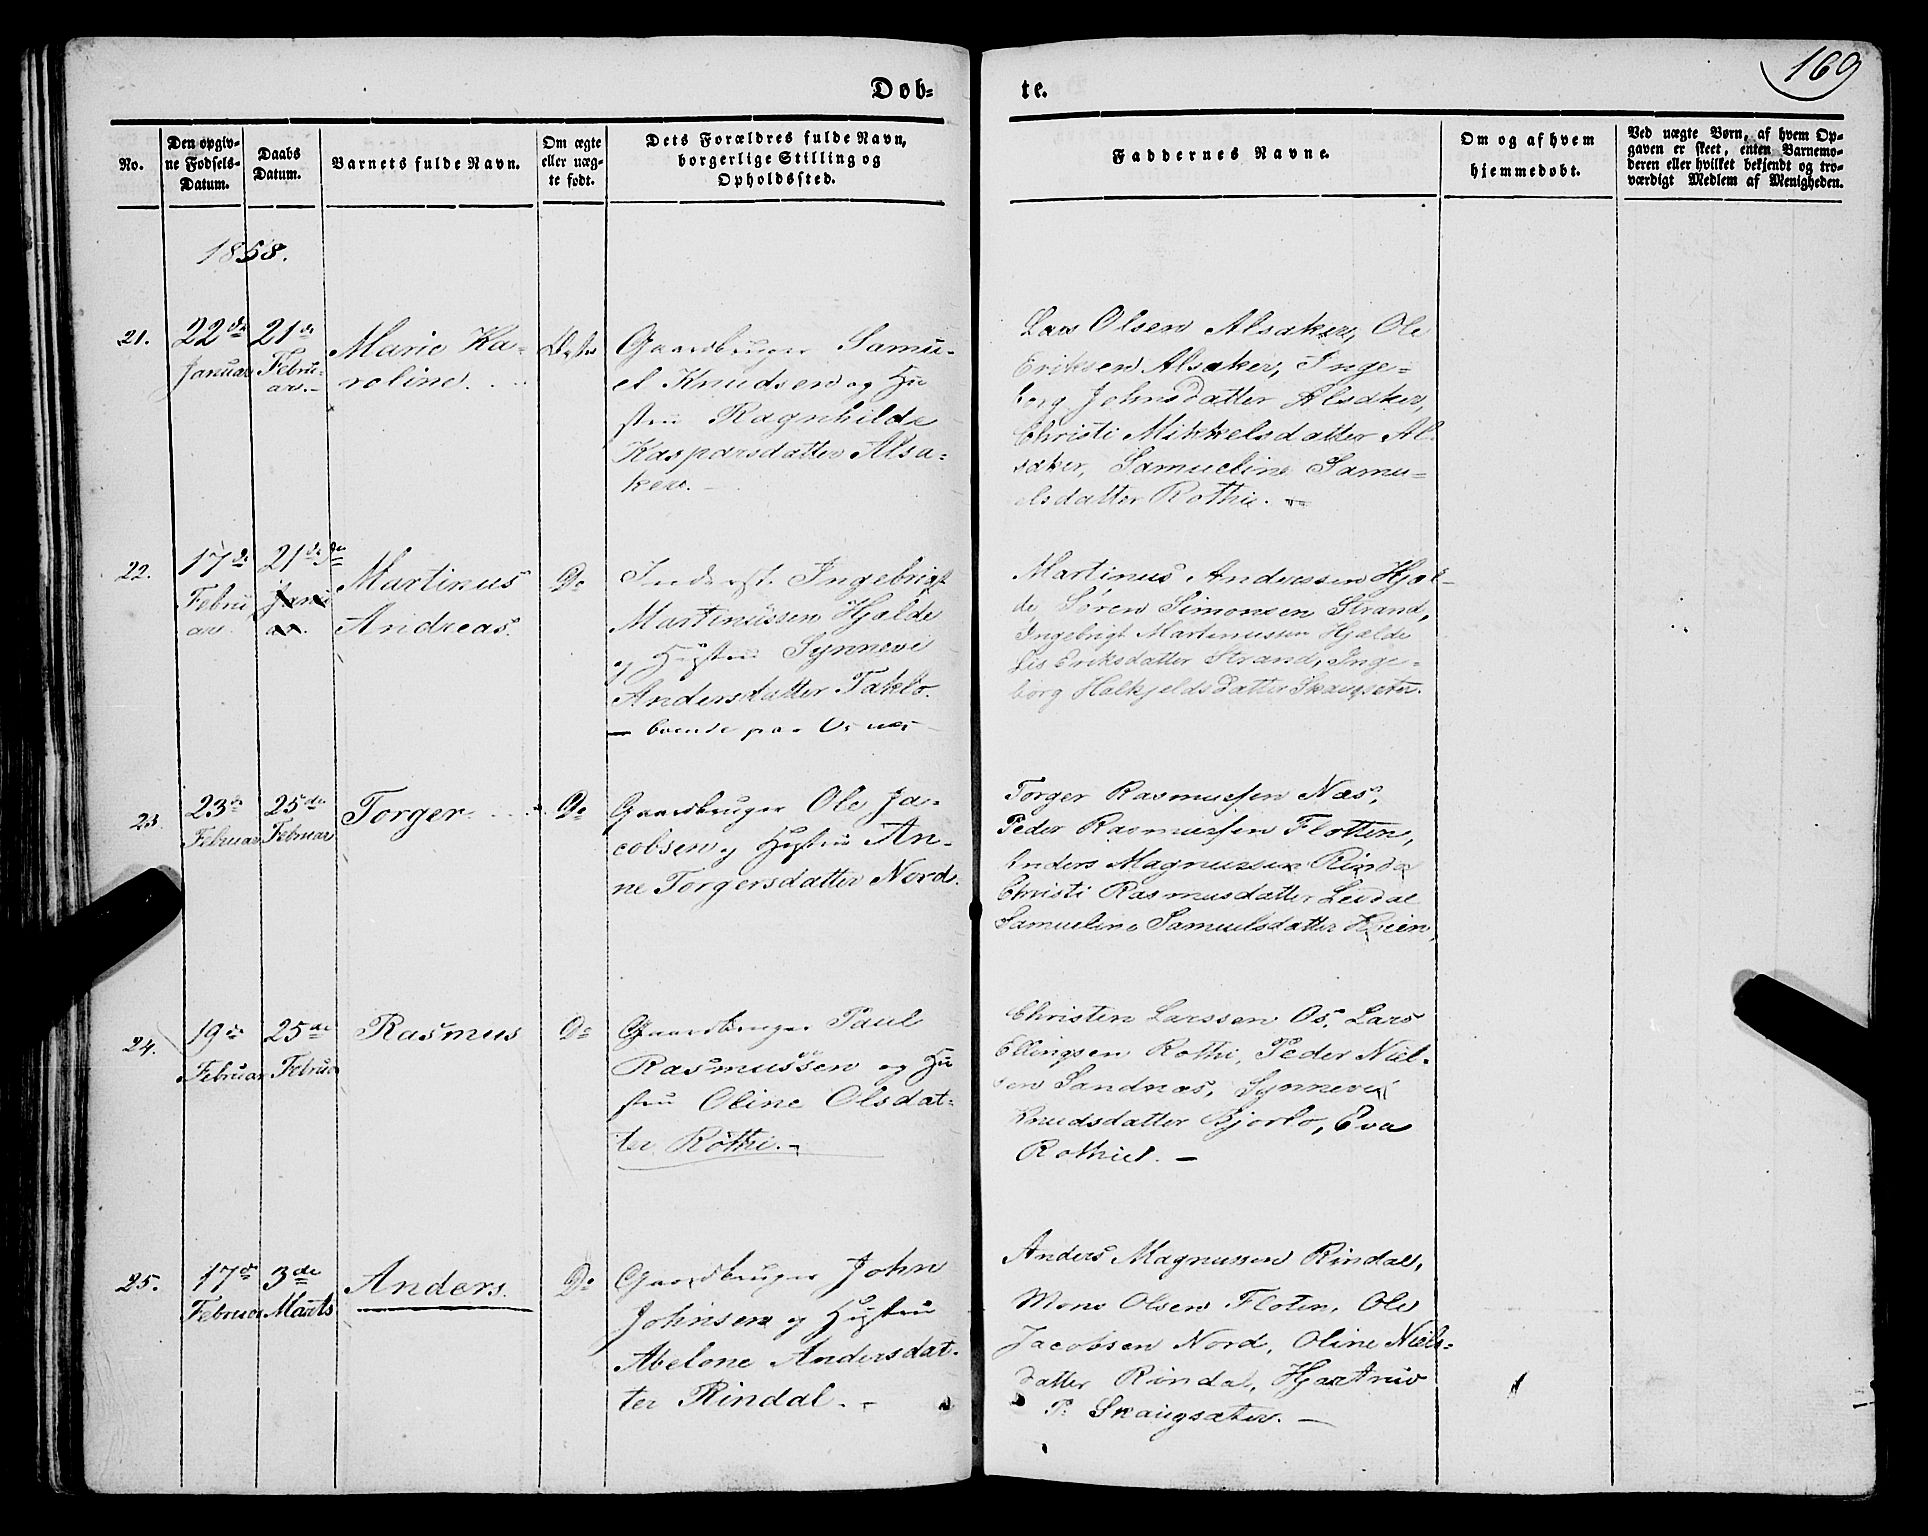 169
Døb= te.
No.
Den opgiv-
ne Fødsels-
Datum.
Daabs
Datum.
Barnets fulde Navn.
Om ægte
eller uæg-
te født.
Dets Forældres fulde Navn,
borgerlige Stilling og
Opholdssted.
Faddernes Navne.
Om og af hvem
hjemmedøbt.
Ved uægte Børn, af hvem Op-
gaven er skeet, enten Barnemo-
deren eller hvilket bekjendt og tro-
værdigt Medlem af Menigheden.
1858.
21.
22de
Januar
21de
Febru-
ar.-
Marie Ka-
roline.
Ægte
Gaardbruger Samu-
el Knudsen og Hu
stru Ragnhilde
Kasparsdatter Alsa-
ker.-
Lars Olsen Alsaker, Ole
Eriksen Alsaker, Inge-
borg Johnsdatter Alsaker,
Christi Mikkelsdatter Al-
saker, Samueline Samu-
elsdatter Rothi.
22.
17de
Febru
ar.
21de
Janu
ar.
Martinus
Andreas.
Do
Inderst. Ingebrigt
Martinussen Hjelde
og Hustru Synnevi
Andersdatter Taklo.
- boende paa
Martinus Anderssen Hjel-
de, Søren Simonsen Strand,
Ingebrigt Martinussen Hjelde
Lis Eriksdatter Strand, Inge-
borg Halkjeldsdatter Skaugseter.
23.
23de
Februar
25de
Februar
Torger.
Do
Gaardbruger Ole Ja-
cobsen og Hustru An-
ne Torgersdatter Nord.
Torger Rasmussen Næs,
Peder Rasmussen Flotten,
Anders Magnussen Rindal
Christi Rasmusdatter Levdal
Samueline Samuelsdatter Heien,
24.
19de
Februar
25de
Februar
Rasmus
Do
Gaardbruger Paul
Rasmussen og Hu
stru Oline Olsdat-
ter Röthi.-
Christen Larssen Os, Lars
Ellingsen Rothi, Peder Niel-
sen Sandnæs, Synnevi
Knudsdatter Bjorlo, Eva
Rothi. -
25.
17de
Februar
3de
Marts
Anders.
Do
Gaardbruger John
Johnsen og Hustru
Abelone Andersdat-
ter Rindal.-
Anders Magnussen Rindal,
Mons Olsen Floten, Ole
Jacobsen Nord, Oline Niels-
datter Rindal, Hjartrue
P. Skaugsæter. -